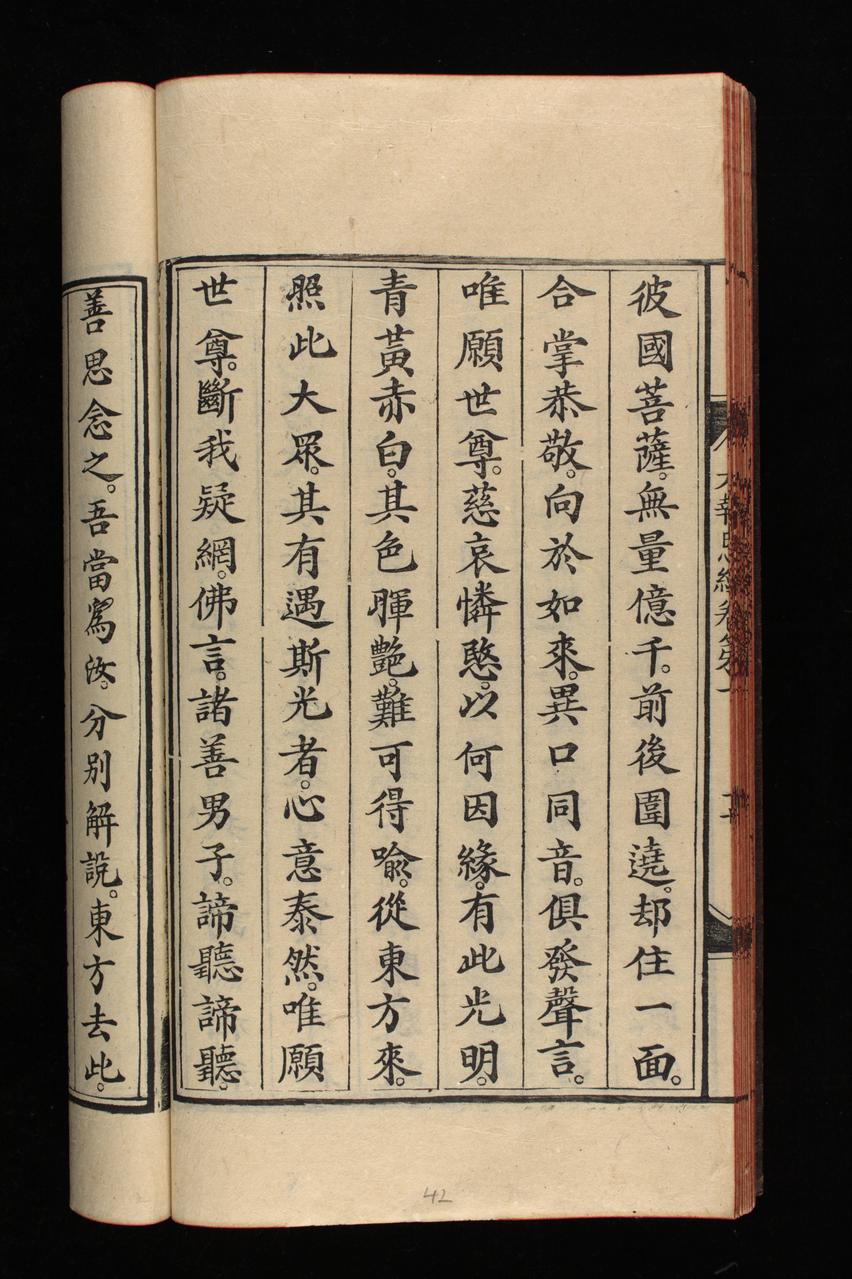 彼國菩薩。無量億千。前後圍遶。却住一面。
合掌恭敬。向於如來。異口同音。俱發聲言。
唯願世尊。慈哀憐愍。以何因緣。有此光明。
青黃赤白。其色暉艷。難可得喻。從東方來。
照此大眾。其有遇斯光者。心意泰然。唯願
世尊。斷我疑網。佛言。諸善男子。諦聽諦聽。
善思念之。吾當為汝。分別解說。東方去此。
報恩經卷第一
42